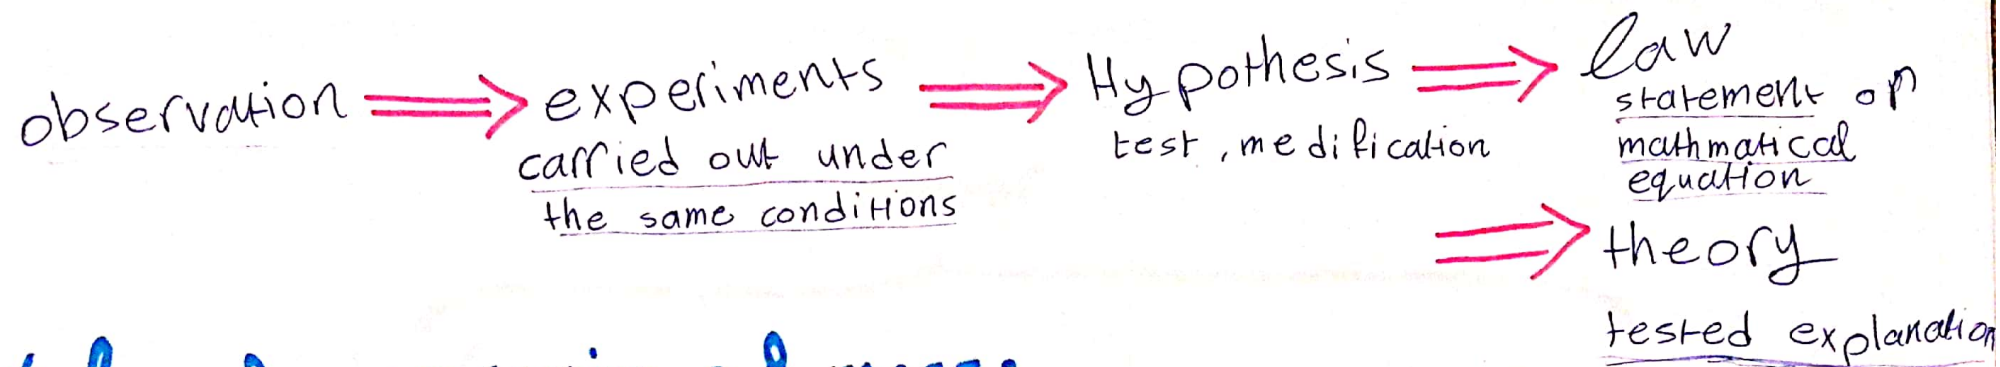 observation ⇒ experiments ⇒ Hypothesis ⇒ law
carried out under
the same conditions
test, medification
statement or
mathmatical
equation
⇒ theory
tested explanation